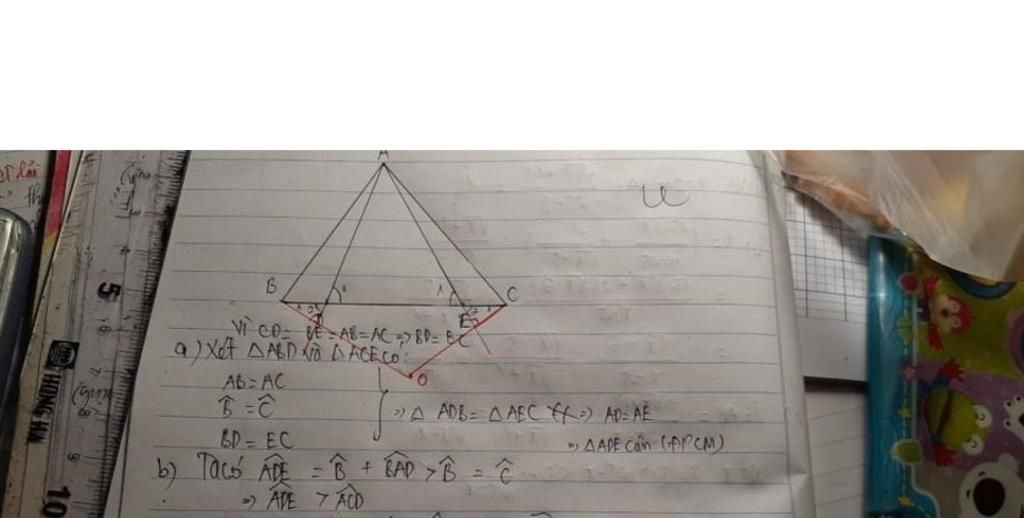 A
B
C
D
E
O
Vì CD = BE = AB = AC => BD = EC
a) Xét △ABD và △ACE có:
AB = AC
B̂ = Ĉ
BD = EC
=> △ ADB = △ AEC => AD = AE
=> △ ADE cân (đPCM)
b) Ta có ADE = B̂ + BAD > B̂ = Ĉ
=> ADE > ACD
5
10